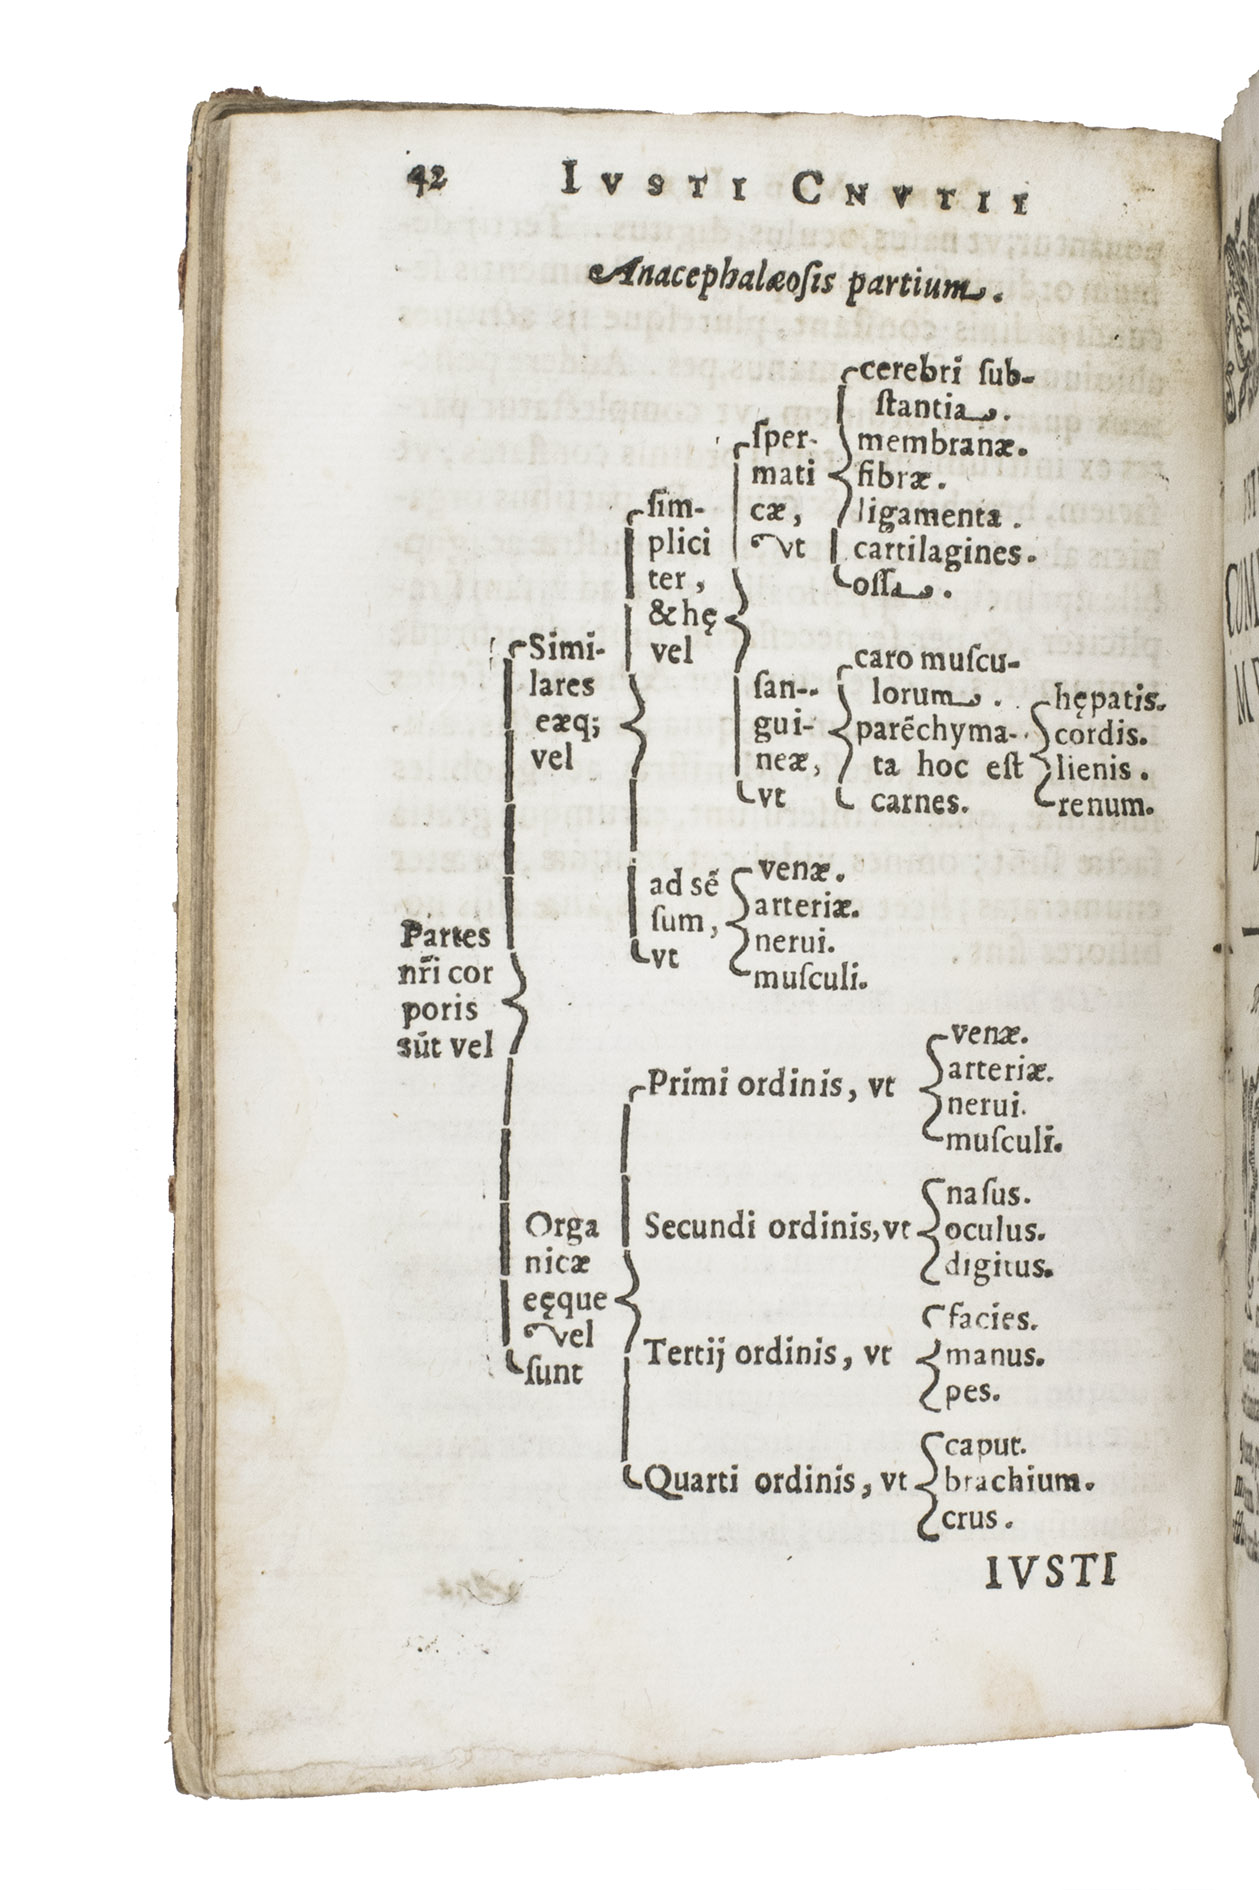 42 IVSTI CNVTII
Anacephalæoſis partium.
Partes
nr̃i cor
poris
sūt vel
Simi-
lares
eæq;
vel
ſim-
plici
ter,
& hę
vel
ſper-
mati
cæ,
vt
cerebri ſub-
ſtantia.
membranæ.
fibræ.
ligamenta.
cartilagines.
oſſa.
ſan-
gui-
neæ,
vt
caro muſcu-
lorum.
parēchyma-
ta hoc eſt
carnes.
hępatis.
cordis.
lienis.
renum.
ad sē
ſum,
vt
venæ.
arteriæ.
nerui.
muſculi.
Orga
nicæ
eęque
vel
ſunt
Primi ordinis, vt
venæ.
arteriæ.
nerui.
muſculi.
Secundi ordinis, vt
naſus.
oculus.
digitus.
Tertij ordinis, vt
facies.
manus.
pes.
Quarti ordinis, vt
caput.
brachium.
crus.
IVSTI